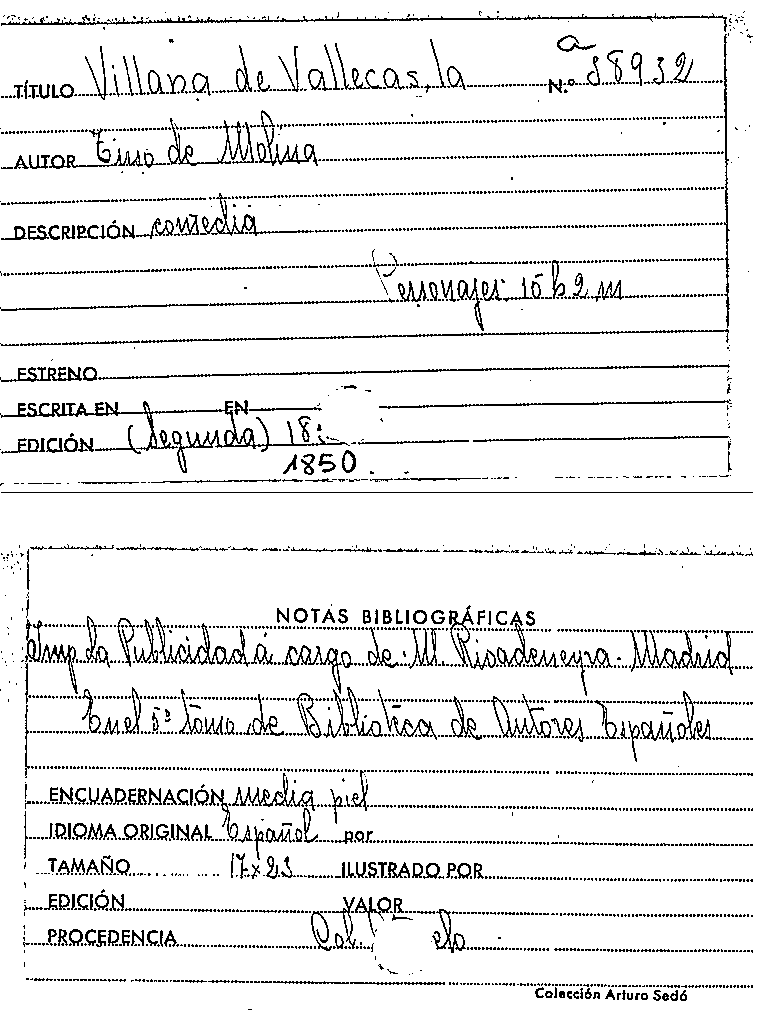 a
TÍTULO Villana de Vallecas, la N.º 38932
AUTOR Tirso de Molina
DESCRIPCIÓN comedia
Personajes: 15 h 2 m
ESTRENO
ESCRITA EN EN
EDICIÓN (Segunda) 18
1850.
NOTAS BIBLIOGRÁFICAS
Imp La Publicidad á cargo de M. Rivadeneyra. Madrid
En el 5º tomo de Biblioteca de Autores Españoles
ENCUADERNACIÓN media piel
IDIOMA ORIGINAL Español por
TAMAÑO 17x23 ILUSTRADO POR
EDICIÓN VALOR
PROCEDENCIA Col.
Colección Arturo Sedó